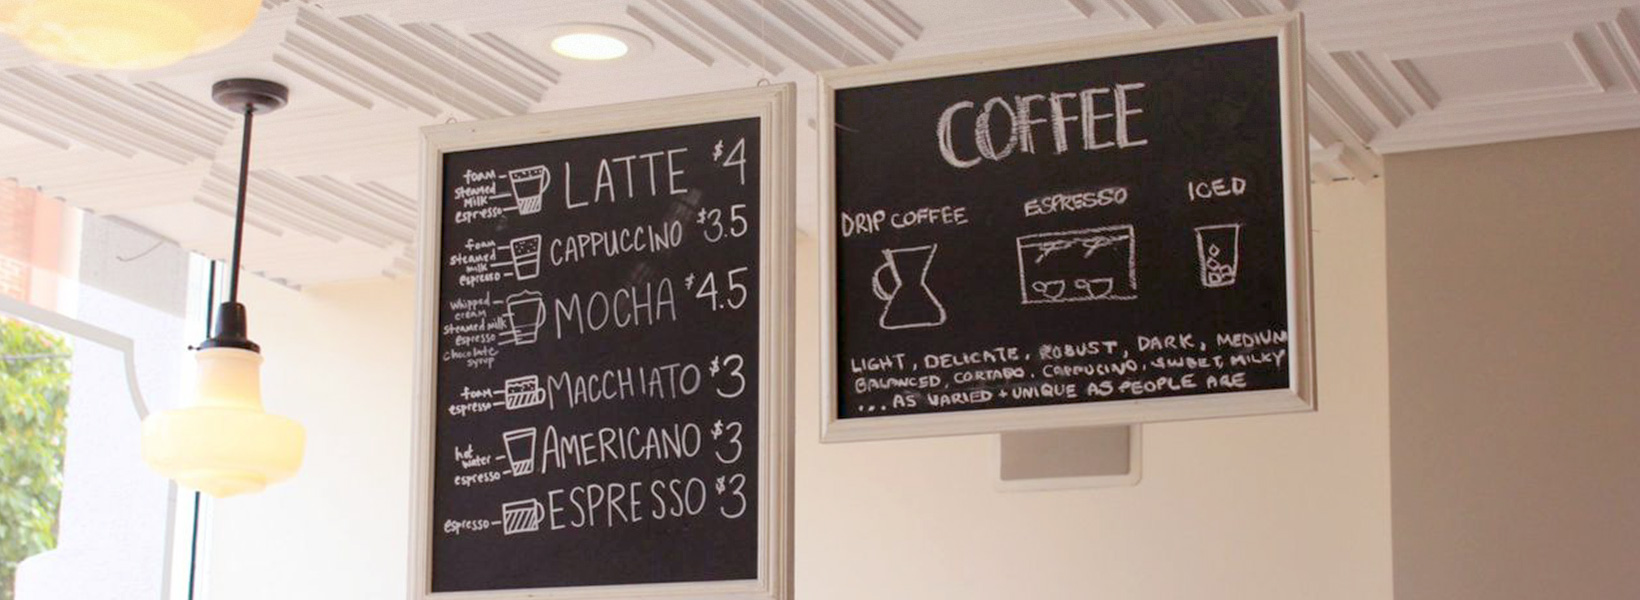 foam
steamed
milk
espresso
LATTE $4
foam
steamed
milk
espresso
CAPPUCCINO $3.5
whipped
cream
steamed milk
espresso
chocolate
syrup
MOCHA $4.5
foam
espresso
MACCHIATO $3
hot
water
espresso
AMERICANO $3
espresso
ESPRESSO $3
COFFEE
DRIP COFFEE
ESPRESSO
ICED
LIGHT, DELICATE, ROBUST, DARK, MEDIUM
BALANCED, CORTADO, CAPPUCINO, SWEET, MILKY
... AS VARIED + UNIQUE AS PEOPLE ARE